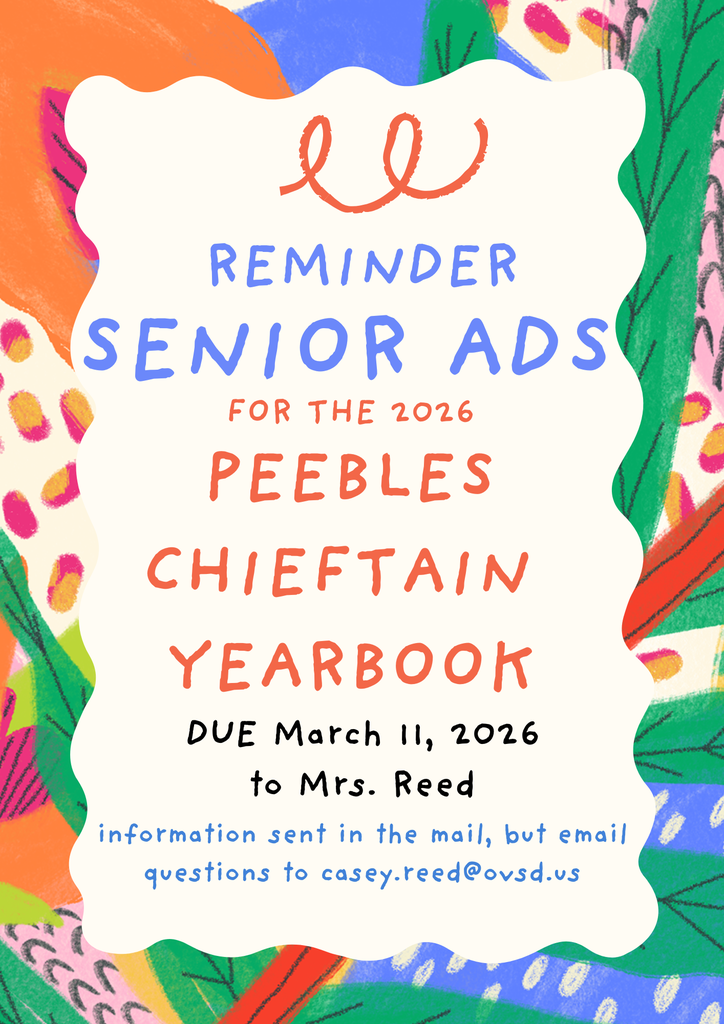 REMINDER
SENIOR ADS
FOR THE 2026
PEEBLES
CHIEFTAIN
YEARBOOK
DUE March 11, 2026
to Mrs. Reed
information sent in the mail, but email
questions to casey.reed@ovsd.us